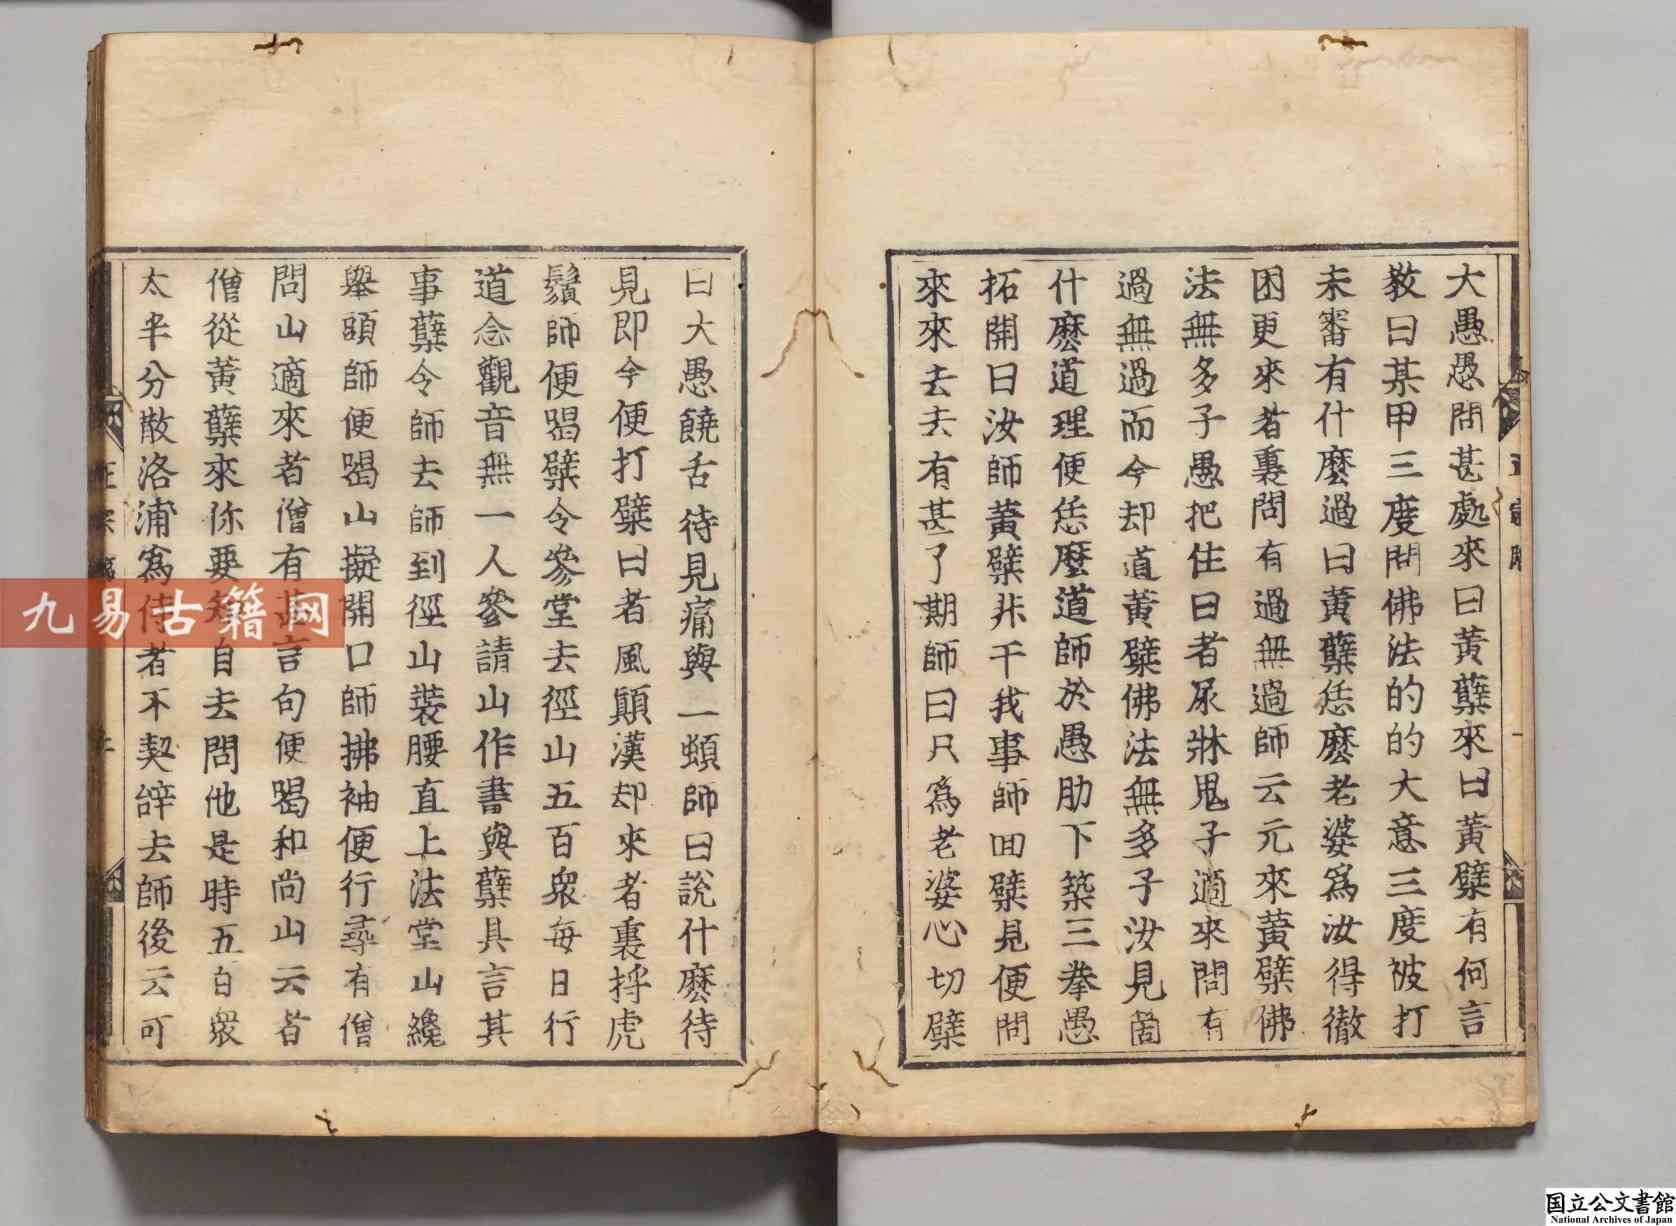 大愚愚問甚處來曰黃蘗來曰黃蘗有何言
教曰某甲三度問佛法的的大意三度被打
未審有什麼過曰黃蘗恁麼老婆爲汝得徹
困更來者裏問有過無過師云元來黃蘗佛
法無多子愚把住曰者尿牀鬼子適來問有
過無過而今却道黃蘗佛法無多子汝見箇
什麼道理便恁麼道師於愚肋下築三拳愚
拓開曰汝師黃蘗非干我事師回蘗見便問
來來去去有甚了期師曰只爲老婆心切蘗
曰大愚饒舌待見痛與一頓師曰說什麼待
見即今便打蘗曰者風顛漢却來者裏捋虎
鬚師便喝蘗令參堂去徑山五百衆每日行
道念觀音無一人參請山作書與蘗具言其
事蘗令師去師到徑山裝腰直上法堂山纔
舉頭師便喝山擬開口師拂袖便行尋有僧
問山適來者僧有甚言句便喝和尚山云者
僧從黃蘗來你要知自去問他是時五百衆
太半分散洛浦爲侍者不契辭去師後云可
九易古籍网
国立公文書館
National Archives of Japan